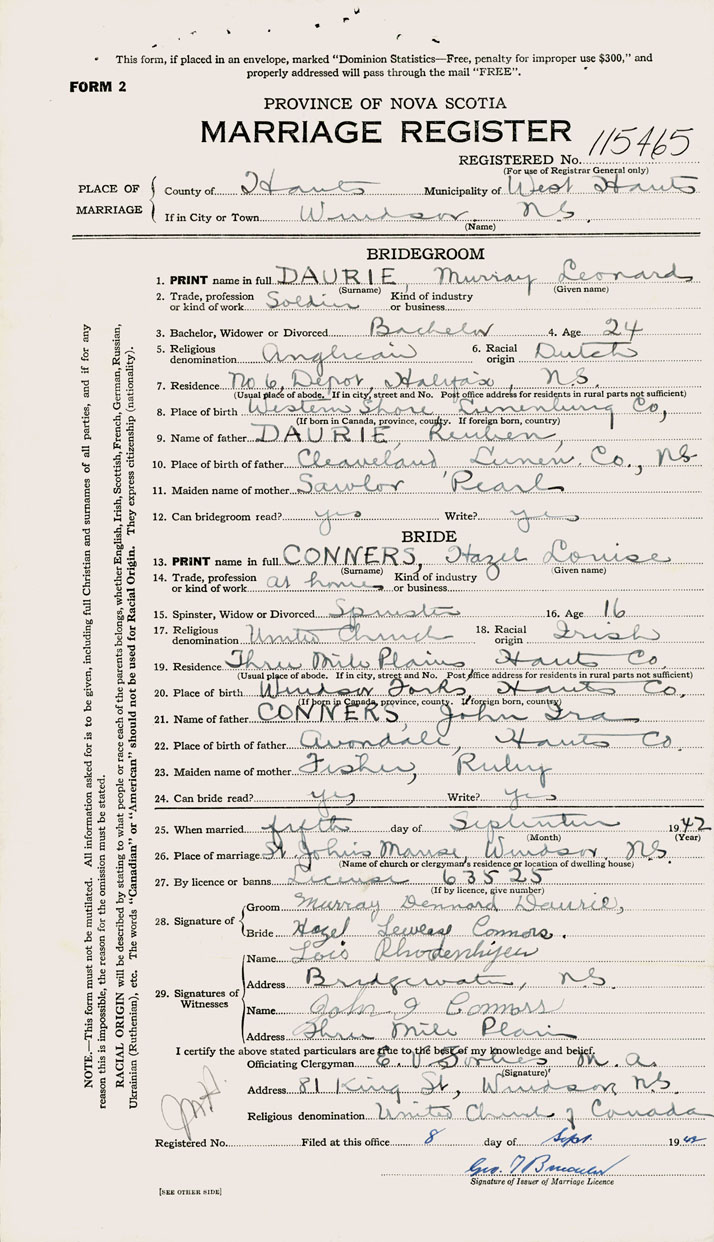 This form, if placed in an envelope, marked "Dominion Statistics—Free, penalty for improper use $300," and
properly addressed will pass through the mail "FREE".
FORM 2
PROVINCE OF NOVA SCOTIA
MARRIAGE REGISTER
REGISTERED No. 115465
(For use of Registrar General only)
PLACE OF MARRIAGE
County of Hants Municipality of West Hants
If in City or Town Windsor, N.S.
(Name)
BRIDEGROOM
1. PRINT name in full DAURIE Murray Leonard
(Surname) (Given name)
2. Trade, profession or kind of work Soldier Kind of industry or business
3. Bachelor, Widower or Divorced Bachelor 4. Age 24
5. Religious denomination Anglican 6. Racial origin Dutch
7. Residence No 6, Depot, Halifax, N.S.
(Usual place of abode. If in city, street and No. Post office address for residents in rural parts not sufficient)
8. Place of birth Western Shore Lunenburg Co,
(If born in Canada, province, county. If foreign born, country)
9. Name of father DAURIE, Reuben,
10. Place of birth of father Cleaveland Lunen. Co., NS
11. Maiden name of mother Sawlor Pearl
12. Can bridegroom read? yes Write? yes
BRIDE
13. PRINT name in full CONNERS, Hazel Louise
(Surname) (Given name)
14. Trade, profession or kind of work at home Kind of industry or business
15. Spinster, Widow or Divorced Spinster 16. Age 16
17. Religious denomination United Church 18. Racial origin Irish
19. Residence Three Mile Plains, Hants Co.
(Usual place of abode. If in city, street and No. Post office address for residents in rural parts not sufficient)
20. Place of birth Windsor Forks, Hants Co.
(If born in Canada, province, county. If foreign born, country)
21. Name of father CONNERS, John Ira
22. Place of birth of father Avondale, Hants Co.
23. Maiden name of mother Fisher, Ruby
24. Can bride read? yes Write? yes
25. When married fifth day of September 1942
(Month) (Year)
26. Place of marriage St. John's Manse, Windsor, N.S.
(Name of church or clergyman's residence or location of dwelling house)
27. By licence or banns License 63525
(If by licence, give number)
28. Signature of
Groom Murray Dennard Daurie,
Bride Hazel Lewease Connors.
29. Signatures of Witnesses
Name Lois Rhodenhizer
Address Bridgewater, N.S.
Name John I Connors
Address Three Mile Plain
I certify the above stated particulars are true to the best of my knowledge and belief.
Officiating Clergyman E. M.A.
(Signature)
Address 81 King St, Windsor, N.S.
Religious denomination United Church of Canada
Registered No. Filed at this office 8 day of Sept. 1942
Geo.
Signature of Issuer of Marriage Licence
[SEE OTHER SIDE]
NOTE.—This form must not be mutilated. All information asked for is to be given, including full Christian and surnames of all parties, and if for any
reason this is impossible, the reason for the omission must be stated.
RACIAL ORIGIN will be described by stating to what people or race each of the parents belongs, whether English, Irish, Scottish, French, German, Russian,
Ukrainian (Ruthenian), etc. The words "Canadian" or "American" should not be used for Racial Origin. They express citizenship (nationality).